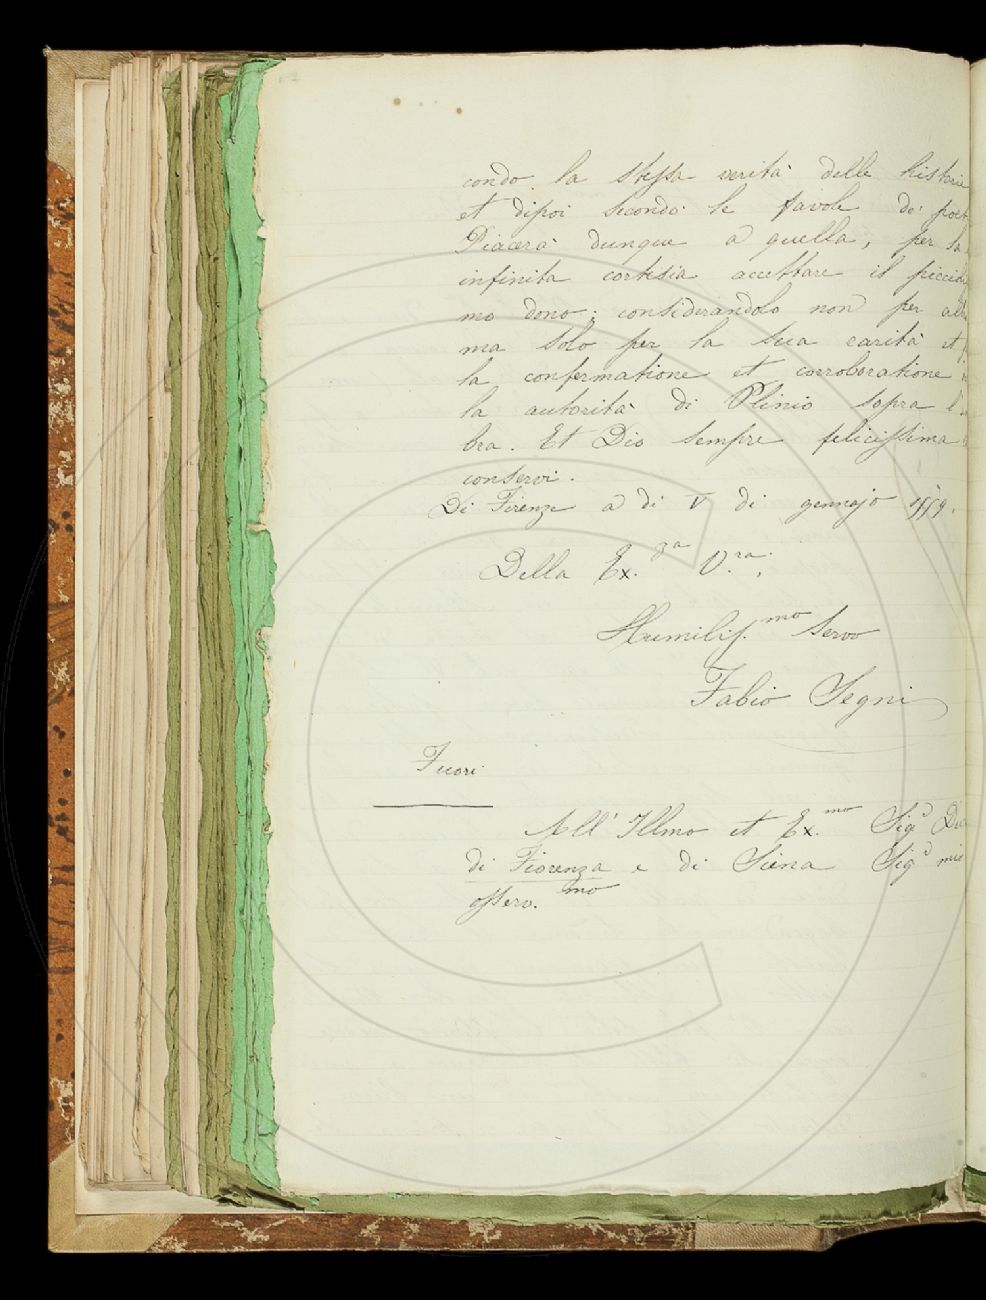 condo la stessa verità delle historie
et dipoi secondo le favole de' poet
Piacerà dunque a quella, per la
infinita cortesia accettare il piccioli
mo dono; considerandolo non per alt
ma solo per la sua carità et
la confermatione et corroboratione
la autorità di Plinio sopra l'
bra. Et Dio sempre felicissima
conservi.
Di Firenze a di V di gennajo 1559.
Della Ex.za V.ra.
Humiliss.mo servo
Fabio Segni
Fuori
All' Illmo et Ex.mo Sig.r Du
di Fiorenza e di Siena Sig.r mio
osserv.mo